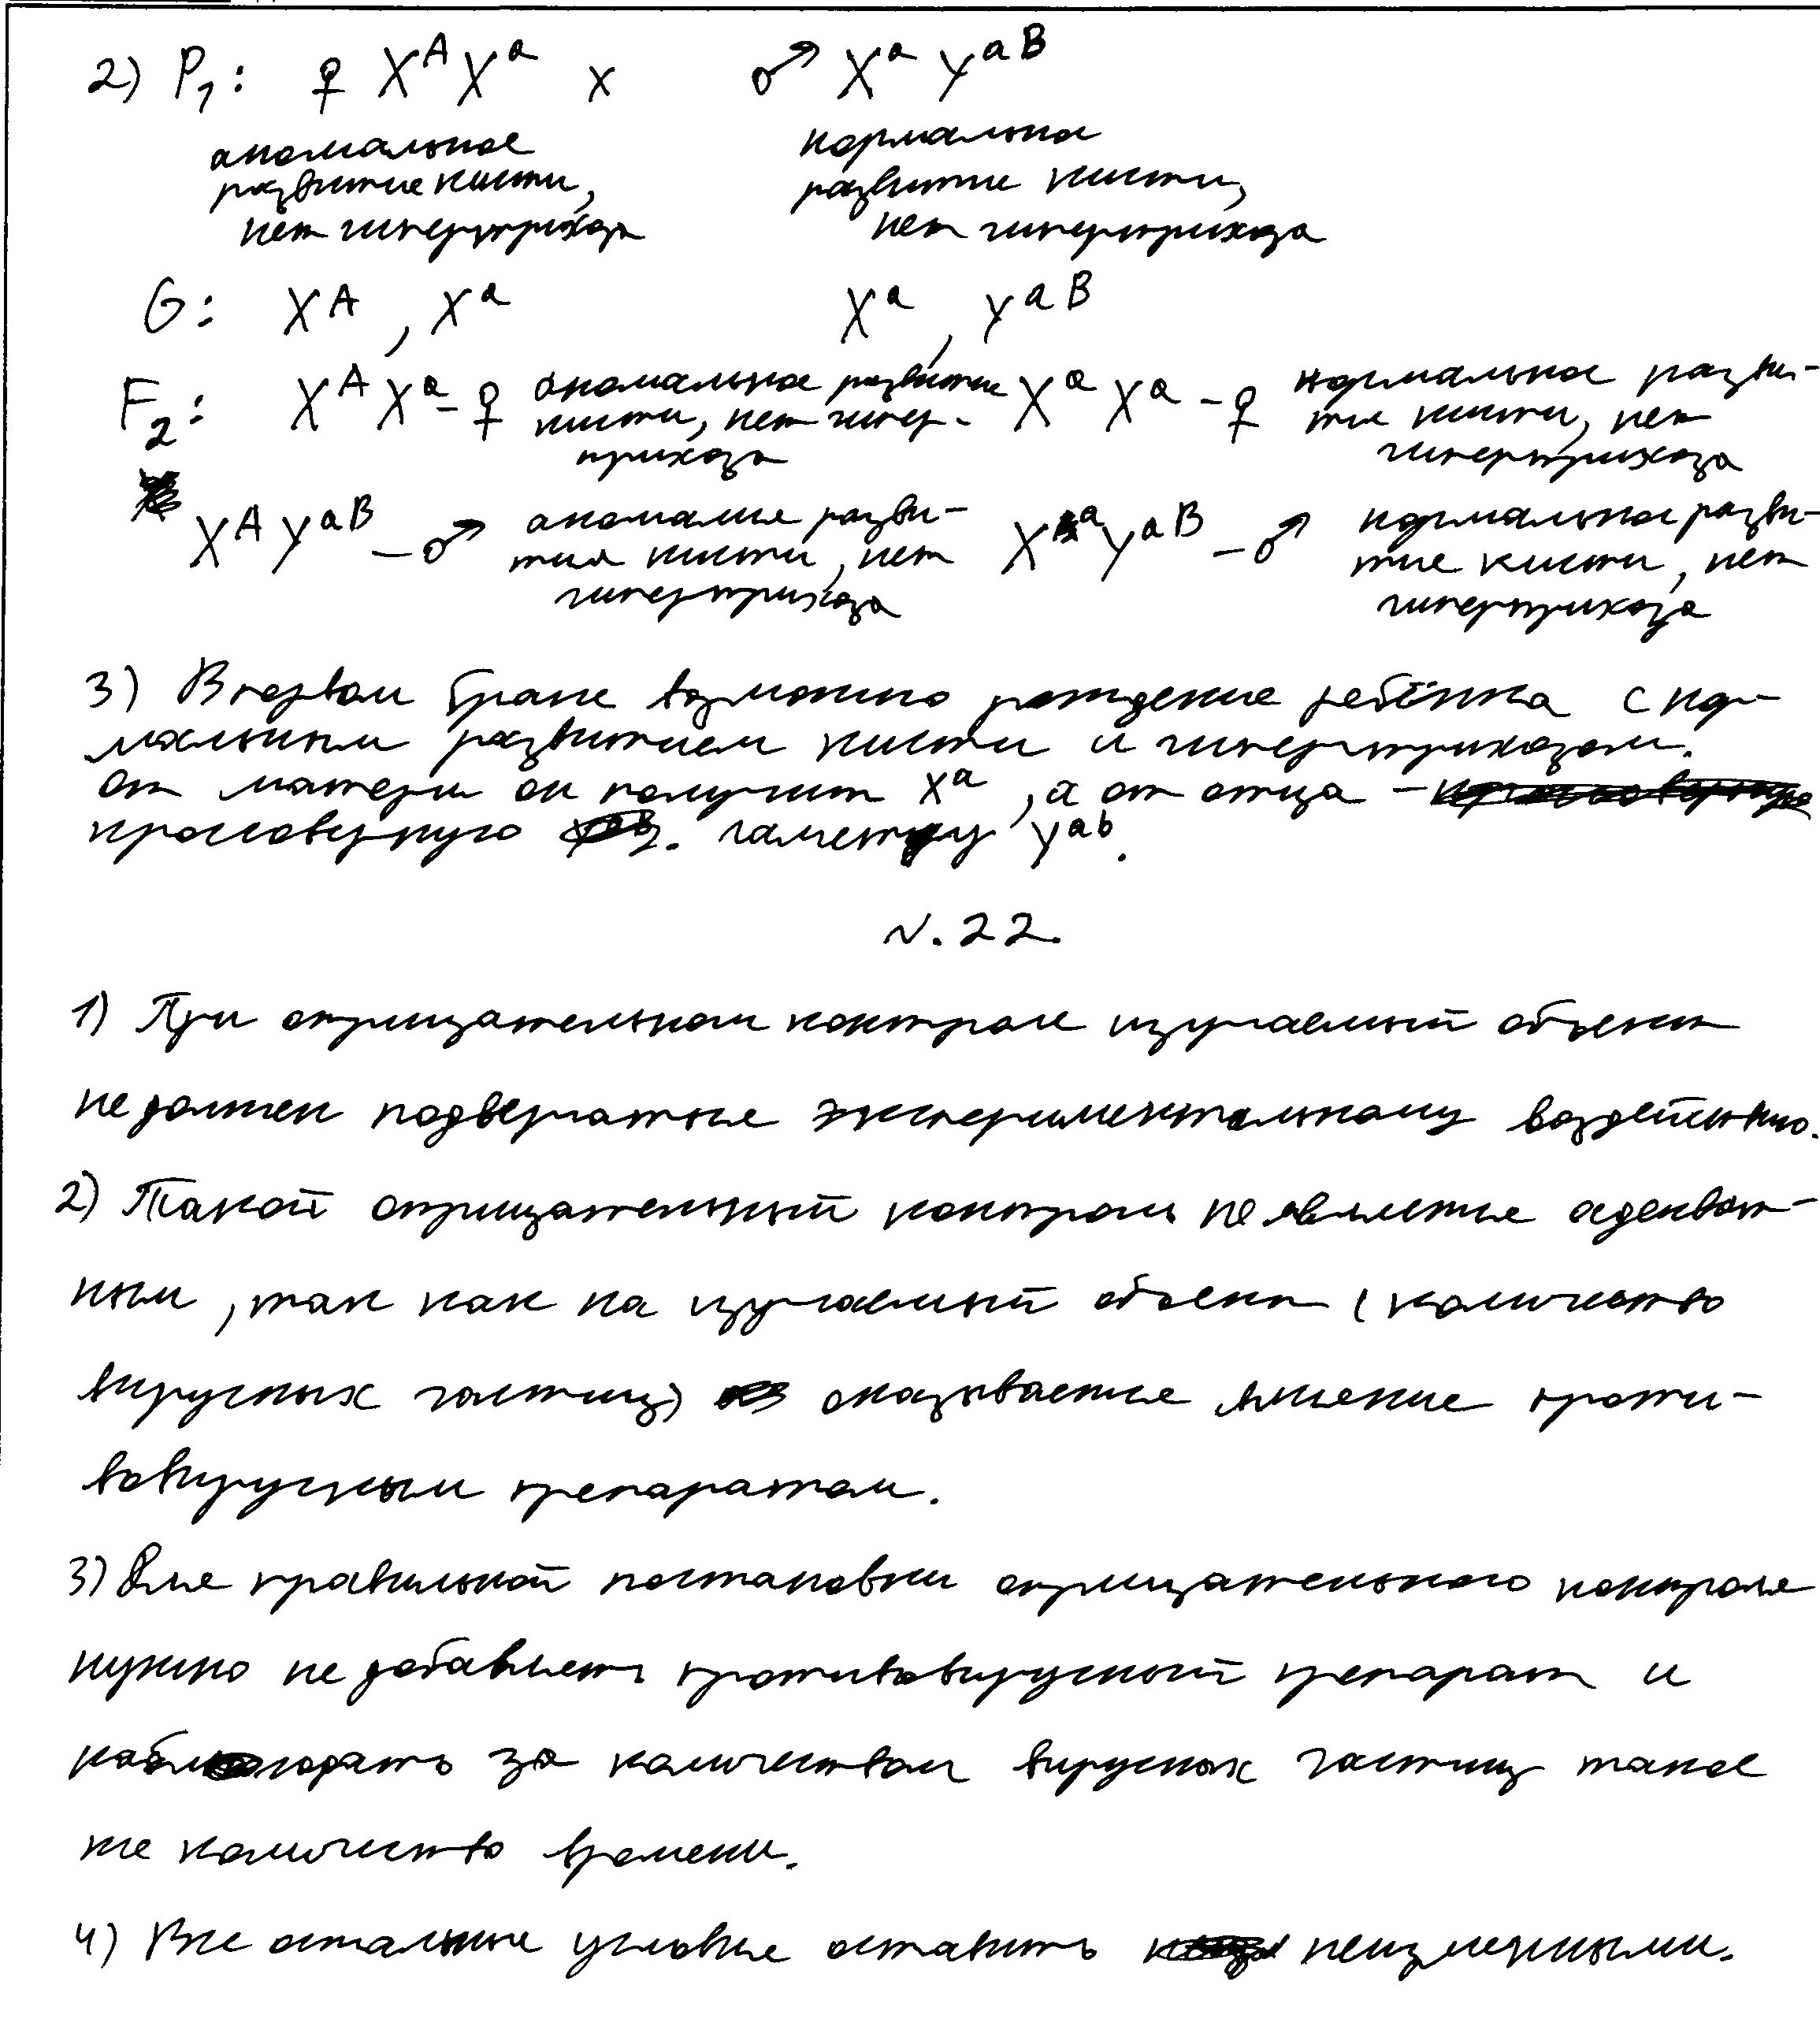 2) P₁: ♀ XᴬXᵃ x ♂ XᵃYᵃᴮ
аномальное нормальное
развитие кисти, развитие кисти,
нет гипертрихоза нет гипертрихоза
G: Xᴬ, Xᵃ Xᵃ, Yᵃᴮ
F₂: XᴬXᵃ - ♀ аномальное развитие кисти, нет гипер- XᵃXᵃ - ♀ нормальное разви-
кисти, нет гипер- тие кисти, нет
трихоза гипертрихоза
XᴬYᵃᴮ - ♂ аномалия разви- XᵃYᵃᴮ - ♂ нормальное разви-
тия кисти, нет тие кисти, нет
гипертрихоза гипертрихоза
3) В первом браке возможно рождение ребёнка с нор-
мальным развитием кисти и гипертрихозом.
От матери он получит Xᵃ, а от отца -
кроссоверную гамету Yᵃᵇ.
N. 22.
1) При отрицательном контроле изучаемый объект
не должен подвергаться экспериментальному воздействию.
2) Такой отрицательный контроль не является адекват-
ным, так как на изучаемый объект (количество
вирусных частиц) оказывается влияние проти-
вовирусным препаратом.
3) Для правильной постановки отрицательного контроля
нужно не добавлять противовирусный препарат и
наблюдать за количеством вирусных частиц такое
же количество времени.
4) Все остальные условия оставить неизменными.